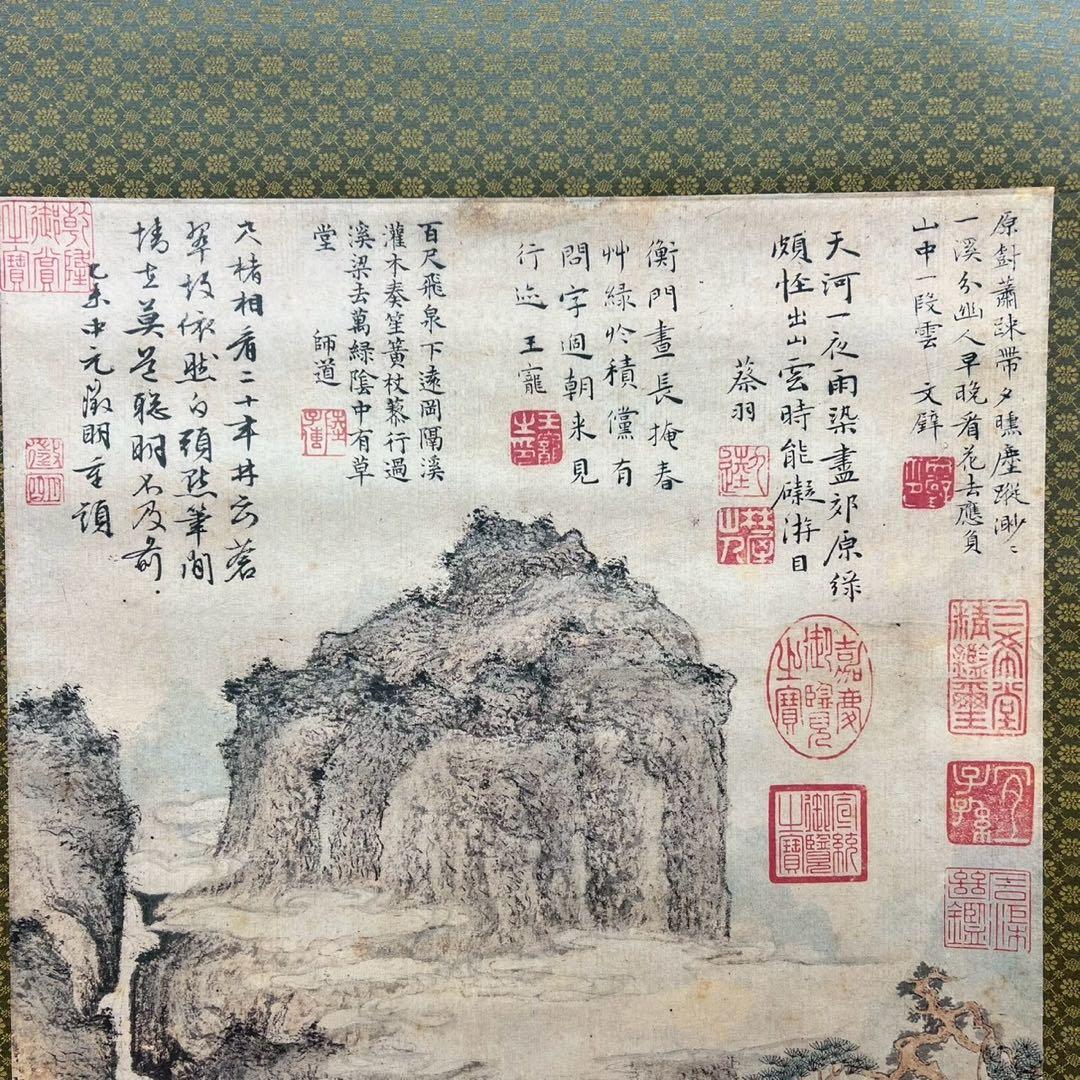 原尌蕭踈帶夕曛塵蹤渺〻
一溪分幽人早晚看花去應負
山中一段雲 文壁
天河一夜雨染盡郊原綠
頗恠出山雲時能礙游目
蔡羽
衡門晝長掩春
艸綠於積儻有
問字過朝来見
行迹 王寵
王寵之印
百尺飛泉下遠岡隔溪
灌木奏笙簧杖藜行過
溪梁去萬綠陰中有草
堂 師道
陸子傳
寸楮相看二十年井云蒼
翠故依然白頭點筆閒
情在莫道聰明不及前
乙未中元徵明重題
徵明
乾隆御賞之寶
三希堂精鑑璽
宜子孫
嘉慶御覽之寶
宣統御覽之寶